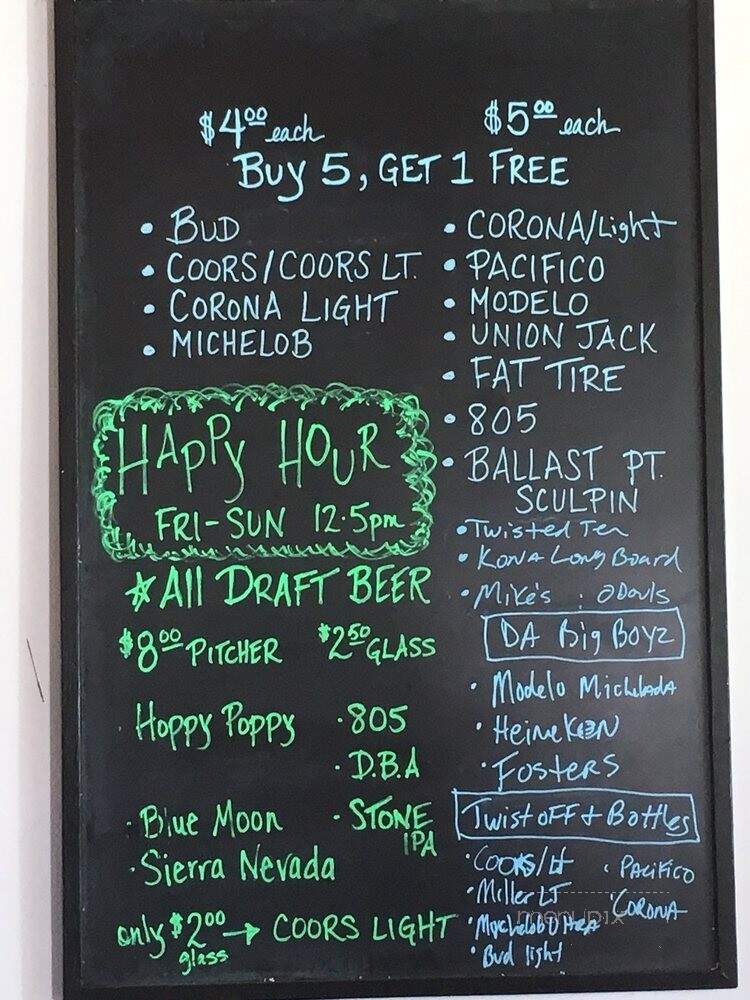 $4.00 each
$5.00 each
Buy 5, GET 1 FREE
• BUD
• COORS/COORS LT.
• CORONA LIGHT
• MICHELOB
• CORONA/Light
• PACIFICO
• MODELO
• UNION JACK
• FAT TIRE
• 805
• BALLAST PT.
SCULPIN
• Twisted Tea
• Kona Long Board
• Mike's • ODouls
DA Big Boyz
• Modelo Michelada
• Heineken
• Fosters
Twist off + Bottles
• Coors/Lt • PACIFICO
• Miller LT
• CORONA
• Mychelob Ultra
• Bud light
HAppy HOUR
FRI-SUN 12-5pm
☆ All DRAFT BEER
$8.00 PITCHER $2.50 GLASS
Hoppy Poppy • 805
• D.B.A
• Blue Moon • STONE
IPA
• Sierra Nevada
only $2.00 → COORS LIGHT
glass
menupix